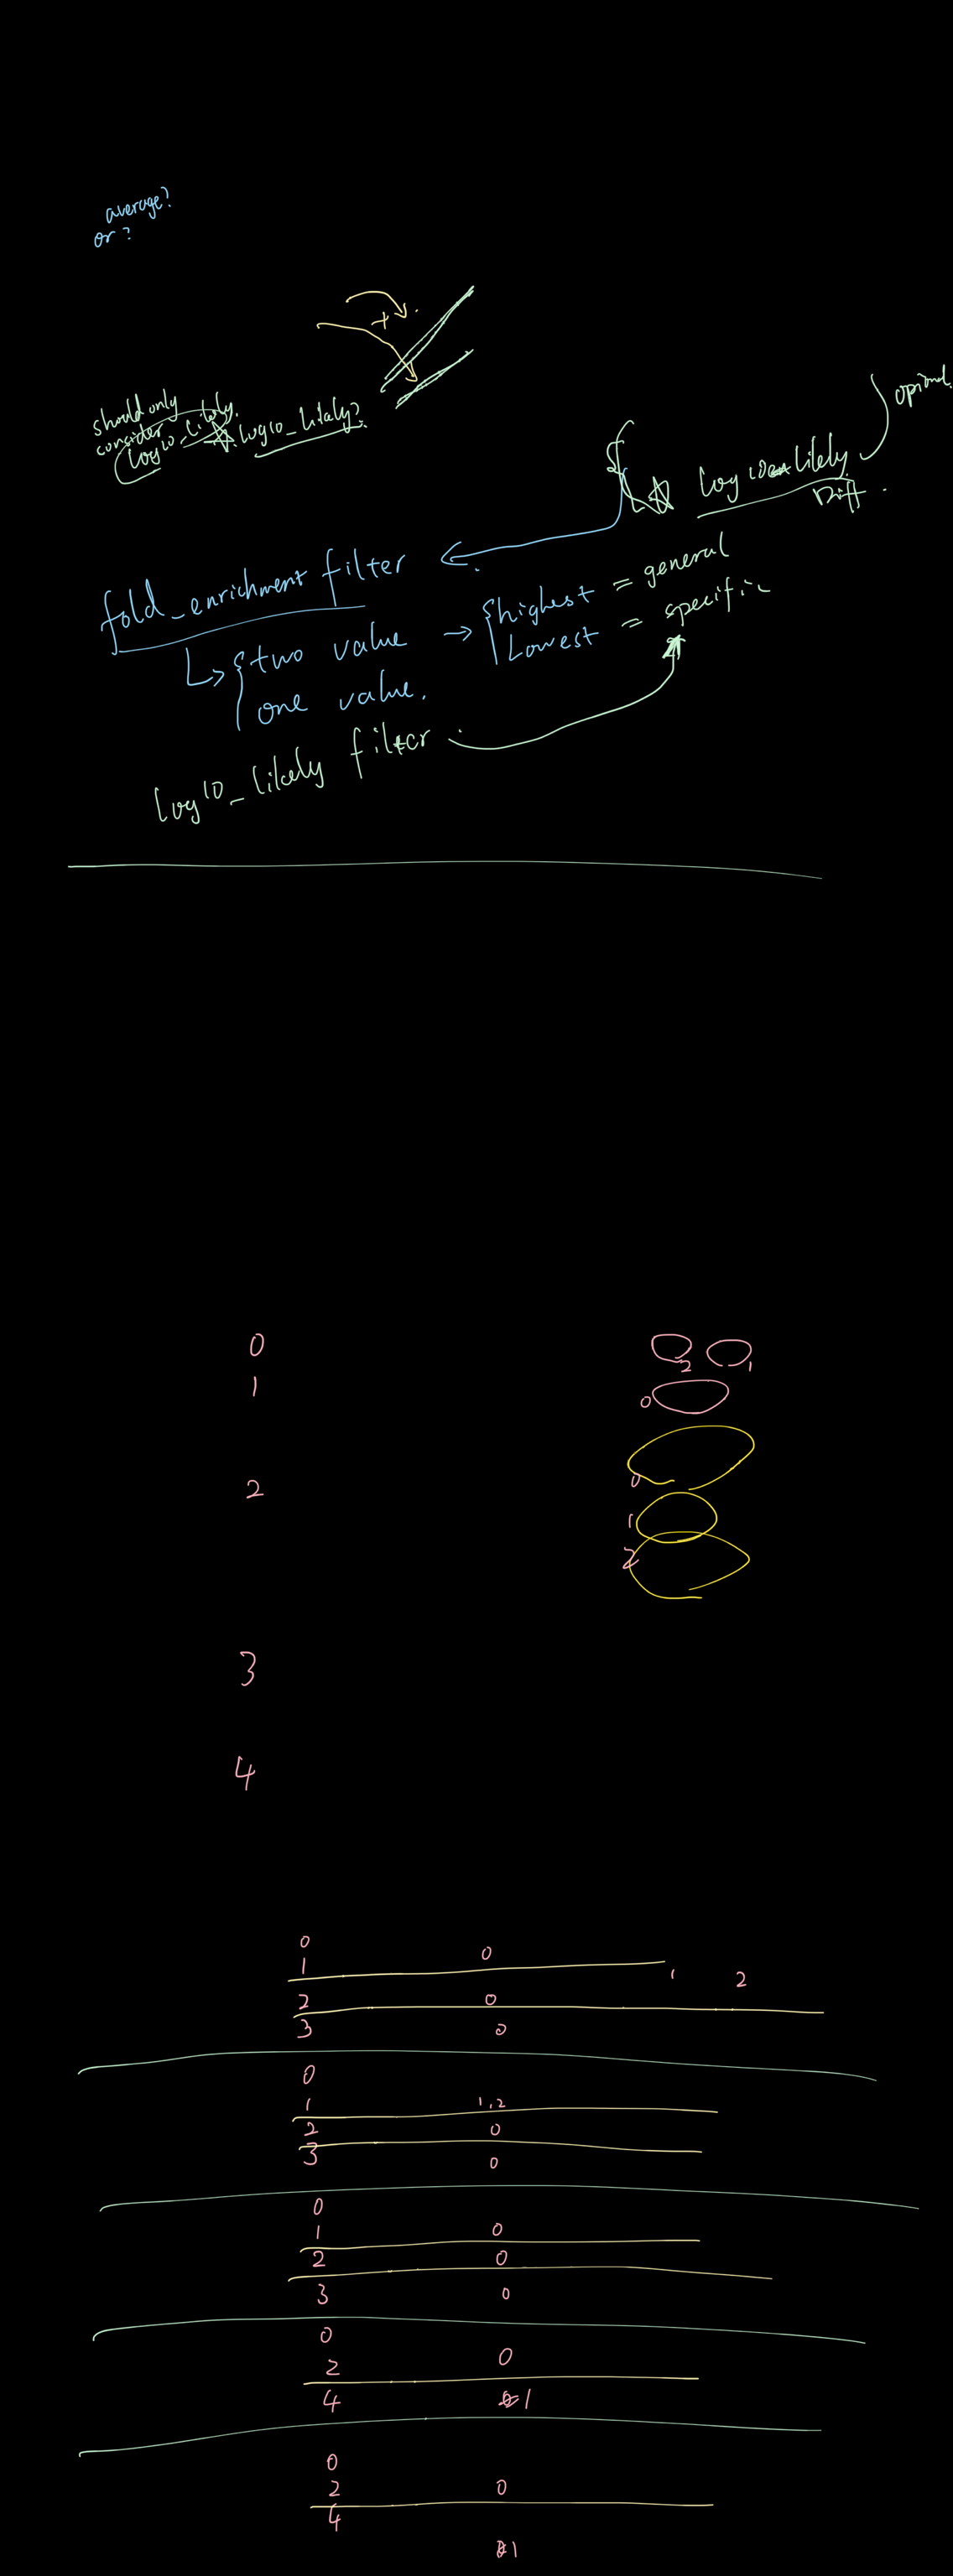 average?
or?
should only
consider
log10_likely.
log10_likely?
optional.
log10_likely
Diff.
fold_enrichment filter
two value → highest = general
Lowest = specific
one value.
log10_likely filter.
0
2 1
1
0
0
2
1
2
3
4
0
0
1
1 2
2 0
3 0
0
1 1,2
2 0
3 0
0
1 0
2 0
3 0
0
2 0
4 1
0
2 0
4
1